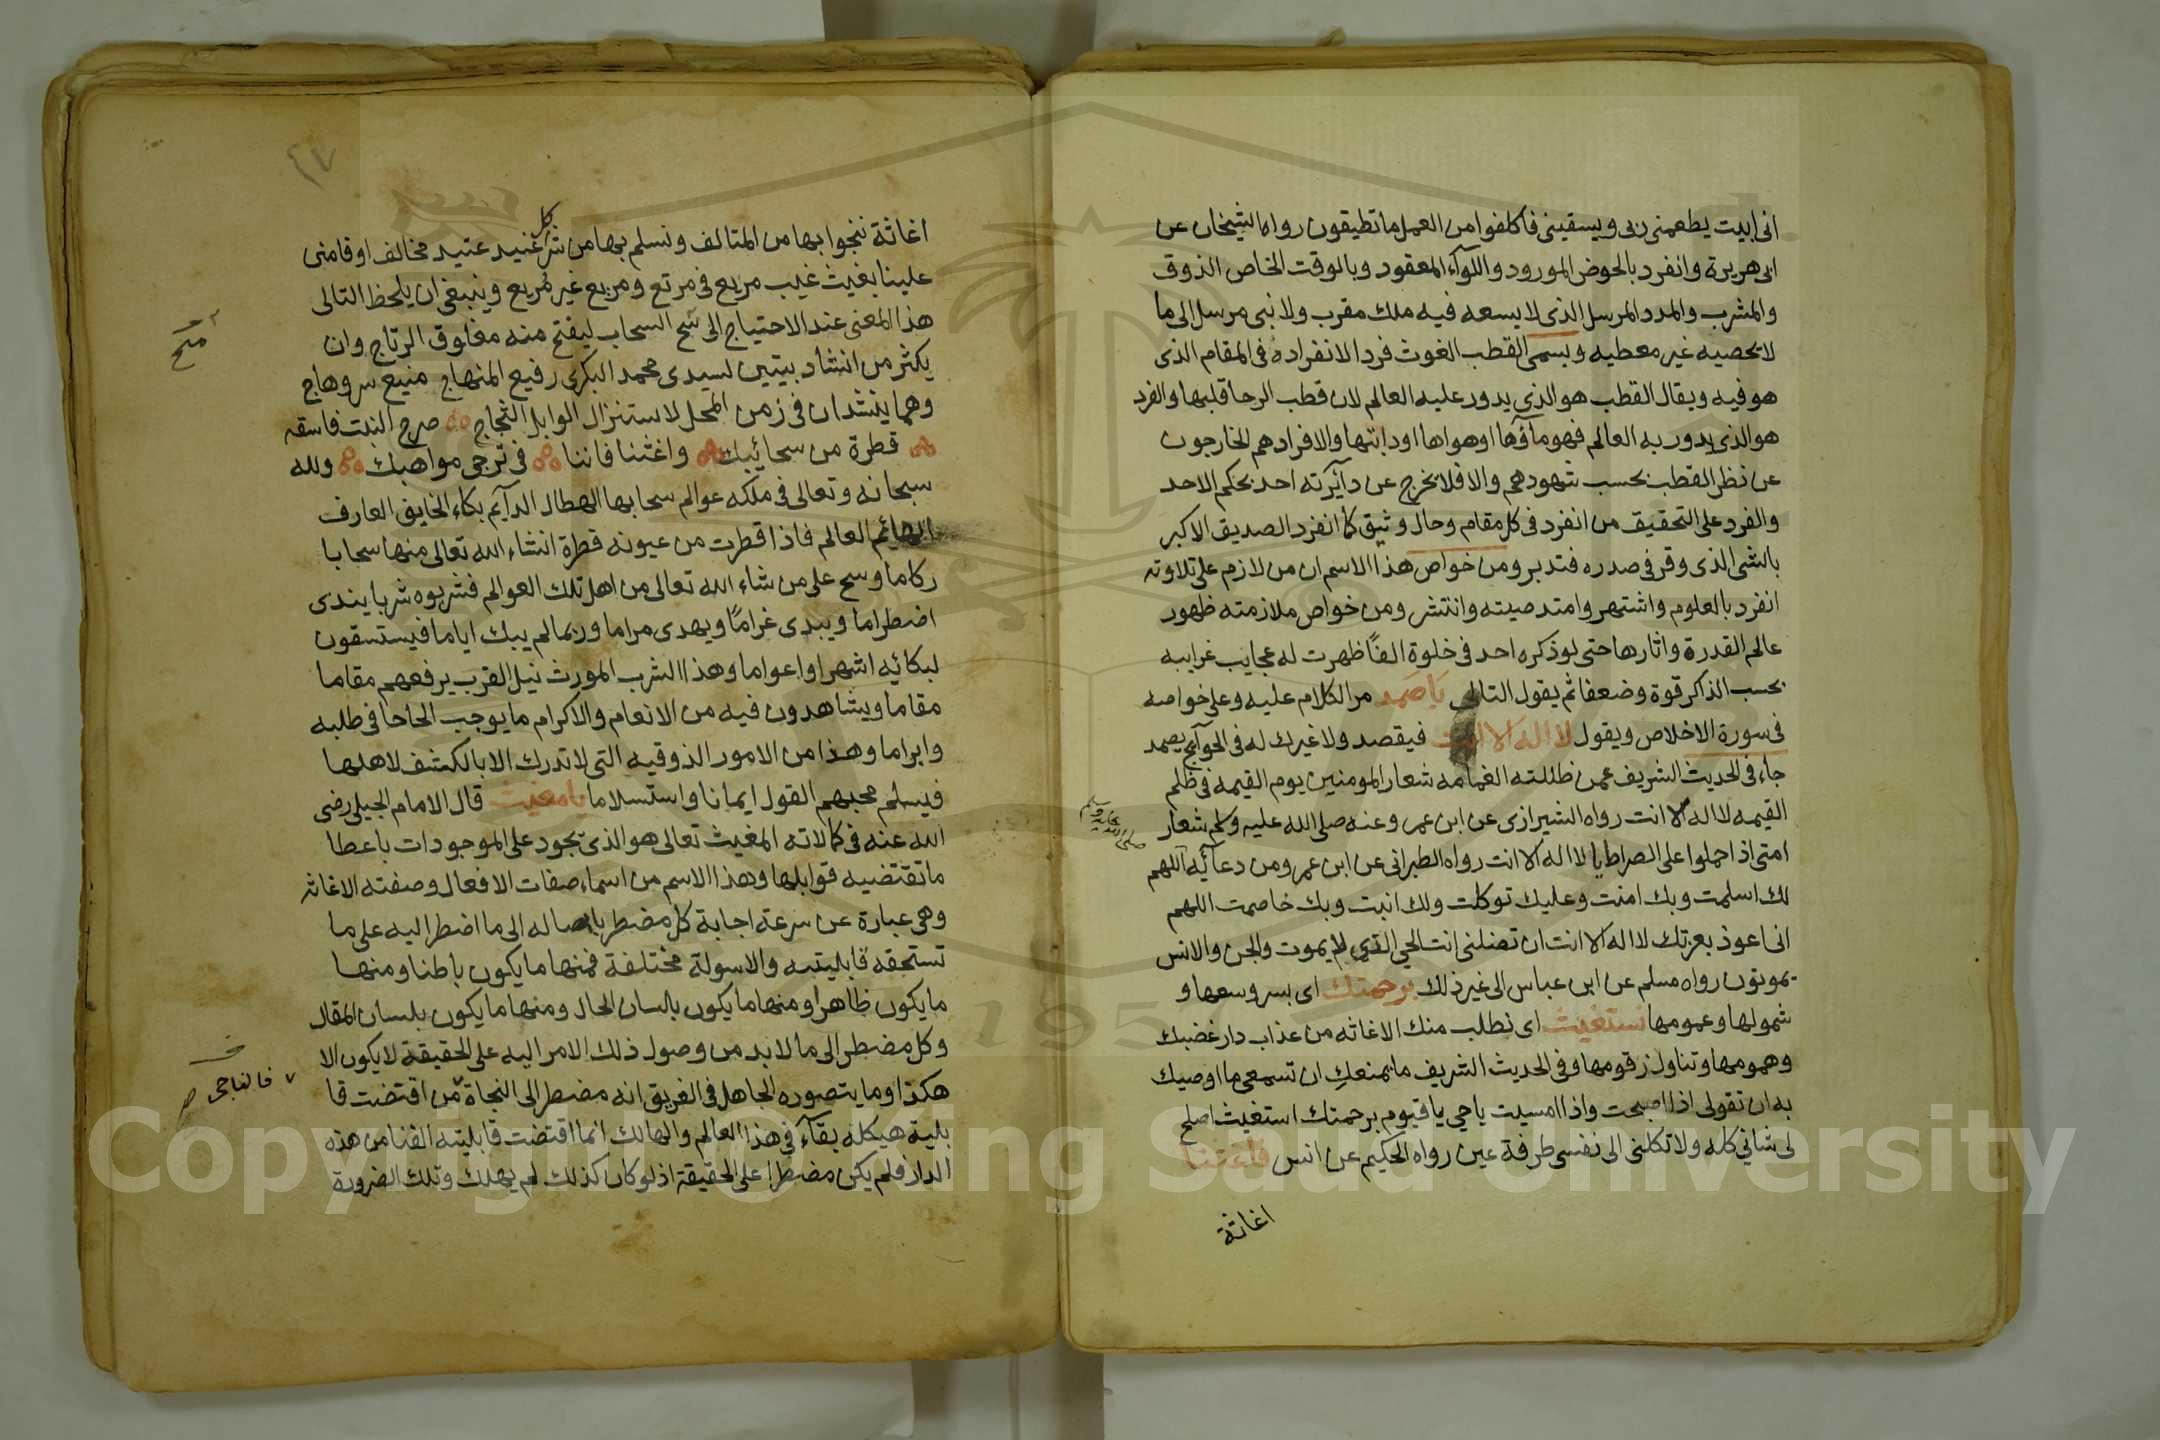 انى ابيت يطعمنى ربى ويسقينى فاكلفوا من العمل ما تطيقون رواه الشيخان عن
ابى هريرة وانفرد بالحوض المورود واللوآء المعقود وبالوقت الخاص الذوق
والمشرب والمدد المرسل الذى لا يسعه فيه ملك مقرب ولا نبى مرسل الى ما
لا يحصيه غير معطيه ويسمى القطب الغوث فردا لانفراده فى المقام الذى
هو فيه ويقال القطب هو الذى يدور عليه العالم لان قطب الرحا قلبها والفرد
هو الذى يدور به العالم فهو مآؤها او هواها او دابتها والافراد هم الخارجون
عن نظر القطب بحسب شهودهم والا فلا يخرج عن دآئرته احد بحكم الاحد
والفرد على التحقيق من انفرد فى كل مقام وحال وثيق كما انفرد الصديق الاكبر
بالشى الذى وقر فى صدره فتدبر ومن خواص هذا الاسم ان من لازم على تلاوته
انفرد بالعلوم واشتهر وامتد صيته وانتشر ومن خواص ملازمته ظهور
عالم القدرة واثارها حتى لو ذكره احد فى خلوة الفًا ظهرت له عجايب غرايبه
بحسب الذاكر قوة وضعفا ثم يقول التالى يَا صَمد مر الكلام عليه وعلى خواصه
فى سورة الاخلاص ويقول لا اله الا انت فيقصد ولا غيرك له فى الحوآيج يصمد
جاء فى الحديث الشريف عمن ظللته الغمامه شعار المومنين يوم القيمه فى ظلم
القيمه لا اله الا انت رواه الشيرازى عن ابن عمر وعنه صلى الله عليه وسلم شعار
صلى الله عليه وسلم
امتى اذا حملوا على الصراط يا لا اله الا انت رواه الطبرانى عن ابن عمر ومن دعآئه اللهم
لك اسلمت وبك امنت وعليك توكلت ولك انبت وبك خاصمت اللهم
انى اعوذ بعزتك لا اله الا انت ان تضلنى انت الحي الذي لا يموت والجن والانس
يموتون رواه مسلم عن ابن عباس الى غير ذلك برحمتك اى بسر وسعها و
شمولها وعمومها نستغيث اى نطلب منك الاغاثه من عذاب دار غضبك
وهمومها وتناول زقومها وفى الحديث الشريف ما يمنعك ان تسمعى ما اوصيك
به ان تقولى اذا اصبحت واذا امسيت يا حي يا قيوم برحمتك استغيث اصلح
لى شانى كله ولا تكلنى الى نفسى طرفة عين رواه الحكيم عن انس فاغثنا
اغاثة
٤٧
اغاثة ننجوا بها من المتالف ونسلم بها من شر كل عنيد عتيد مخالف او فامنن
علينا بغيث غيب مربع فى مرتع ومربع غير مُريع وينبغى ان يلحظ التالى
هذا المعنى عند الاحتياج الى سَح السحاب ليفتح منه مغلوق الرتاج وان
يكثر من انشاد بيتين لسيدى محمد البكرى رفيع المنهاج منيع سر وهاج
وهما ينشدان فى زمن المحل لاستنزال الوابل الثجاج صرح النبت فاسقه
قطرة من سحائبك واغثنا فاننا فى ترجى مواهبك ولله
سبحانه وتعالى فى ملكه عوالم سحابها الهطال الدآيم بكاء الخايف العارف
الهائم العالم فاذا قطرت من عيونه قطرة انشاء الله تعالى منها سحابا
ركاما وسح على من شاء الله تعالى من اهل تلك العوالم فشربوه شربا يندى
اضطراما ويبدى غرامًا ويهدى مراما وربما لم يبك اياما فيستسقون
لبكائه اشهرا واعواما وهذا الشرب المورث نيل القرب يرفعهم مقاما
مقاما ويشاهدون فيه من الانعام والاكرام ما يوجب الحاحا فى طلبه
وابراما وهذا من الامور الذوقيه التى لا تدرك الا بالكشف لاهلها
فيسلم محبهم القول ايمانا واستسلاما يا مغيث قال الامام الجيلى رضى
الله عنه فى كمالاته المغيث تعالى هو الذى يجود على الموجودات باعطا
ما تقتضيه قوابلها وهذا الاسم من اسماء صفات الافعال وصفته الاغاثه
وهى عبارة عن سرعة اجابة كل مضطر بايصاله الى ما اضطر اليه على ما
تستحقه قابليته والاسولة مختلفة فمنها ما يكون باطنا ومنها
ما يكون ظاهرا ومنها ما يكون بلسان الحال ومنها ما يكون بلسان المقال
وكل مضطر الى ما لا بد من وصول ذلك الامر اليه على الحقيقة لا يكون الا
هكذا وما يتصوره الجاهل فى الغريق انه مضطر الى النجاة من اقتضت قا
٧ فالناجى
بلية هيكله بقآء فى هذا العالم والهالك انما اقتضت قابليته الفنا من هذه
الدار فلم يكن مضطرا على الحقيقة اذ لو كان كذلك لم يهلك وتلك الضرورة
Copyright © King Saud University
1957